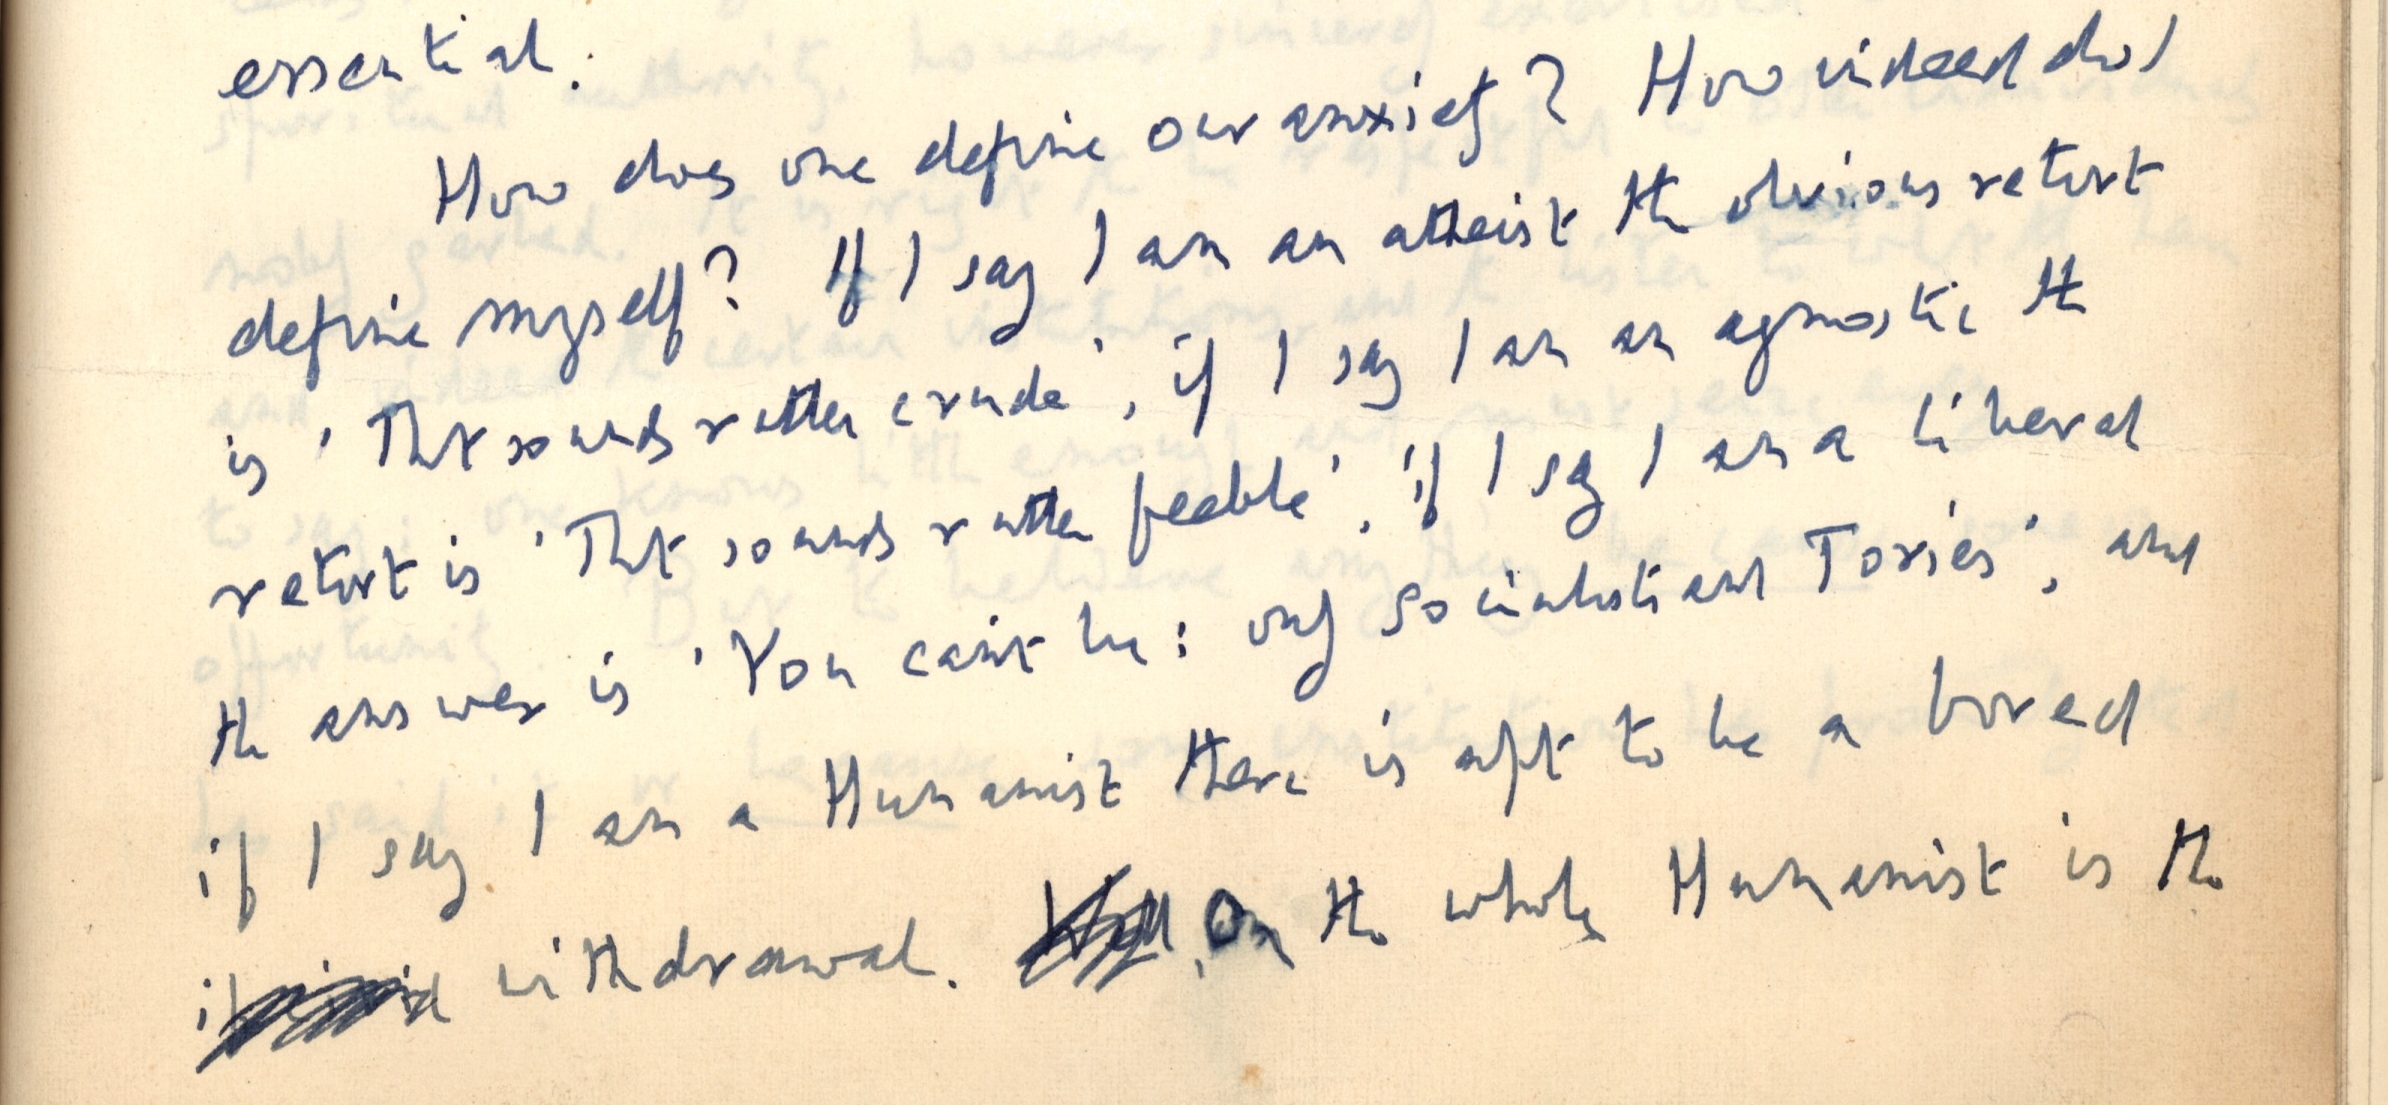 essential.
How does one define our anxiety? How indeed do I
define myself? If I say I am an atheist the obvious retort
is 'That sounds rather crude', if I say I am an agnostic the
retort is 'That sounds rather feeble', if I say I am a liberal
the answer is 'You can't be: only Socialists and Tories', and
if I say I am a Humanist there is apt to be a bored
withdrawal. On the whole Humanist is the